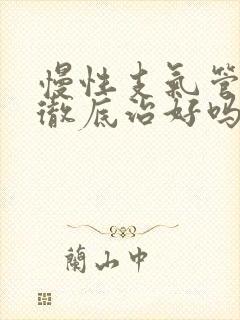 慢性支氣管
徹底治好嗎
蘭山中